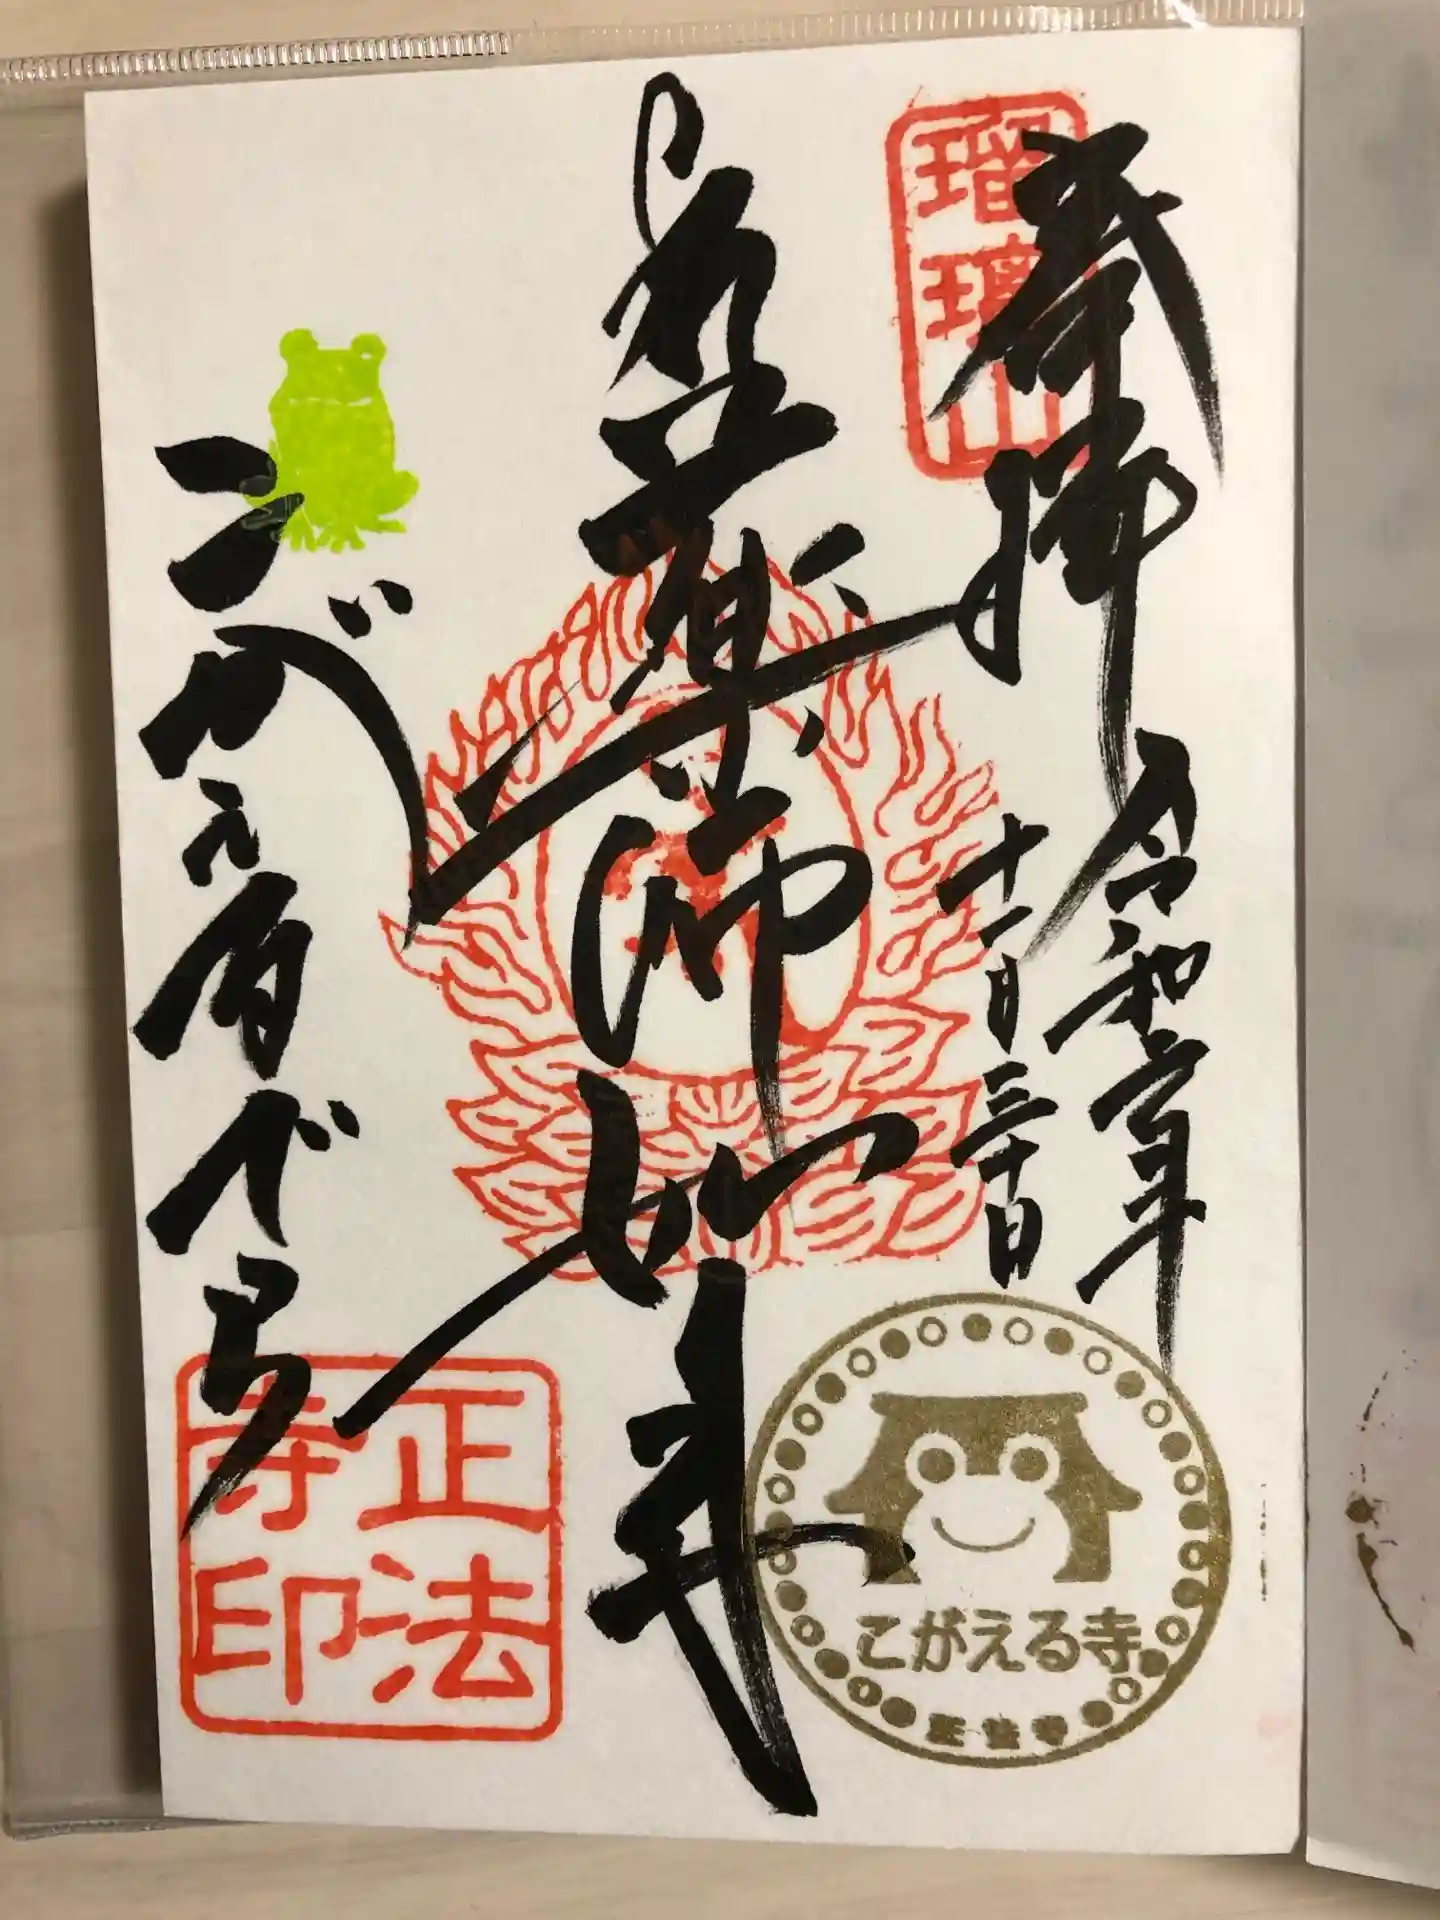 奉拝
瑠璃山
令和六年
十一月三十日
薬師如来
こがえ
正法
寺印
こがえる寺
正法寺